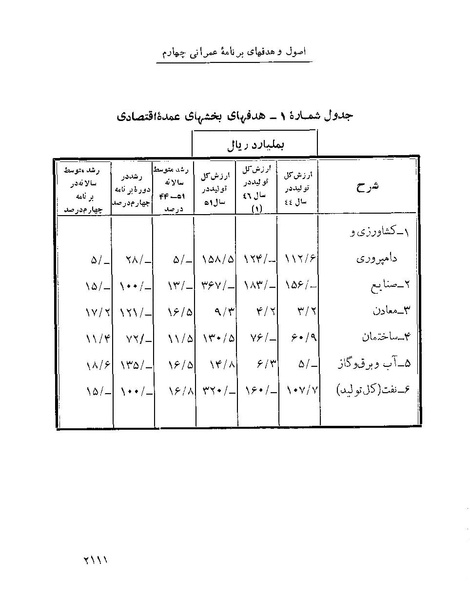 اصول و هدفهای برنامهٔ عمرانی چهارم
جدول شمارهٔ ۱ ـ هدفهای بخشهای عمدهٔ اقتصادی
بملیارد ریال
شرح | ارزش کل تولید در سال ۴۴ | ارزش کل تولید در سال ۴۶ (۱) | ارزش کل تولید در سال ۵۱ | رشد متوسط سالانه ۵۱ـ۴۴ درصد | رشد در دورهٔ برنامه چهارم درصد | رشد متوسط سالانه در برنامه چهارم درصد
۱ـ کشاورزی و
دامپروری | ۱۱۲/۶ | ۱۲۴/ــ | ۱۵۸/۵ | ۵/ــ | ۲۸/ــ | ۵/ــ
۲ـ صنایع | ۱۵۶/ــ | ۱۸۳/ــ | ۳۶۷/ــ | ۱۳/ــ | ۱۰۰/ــ | ۱۵/ــ
۳ـ معادن | ۳/۲ | ۴/۲ | ۹/۳ | ۱۶/۵ | ۱۲۱/ــ | ۱۷/۲
۴ـ ساختمان | ۶۰/۹ | ۷۶/ــ | ۱۳۰/۵ | ۱۱/۵ | ۷۲/ــ | ۱۱/۴
۵ـ آب و برق و گاز | ۵/ــ | ۶/۳ | ۱۴/۸ | ۱۶/۵ | ۱۳۵/ــ | ۱۸/۶
۶ـ نفت (کل تولید) | ۱۰۷/۷ | ۱۶۰/ــ | ۳۲۰/ــ | ۱۶/۸ | ۱۰۰/ــ | ۱۵/ــ
۲۱۱۱